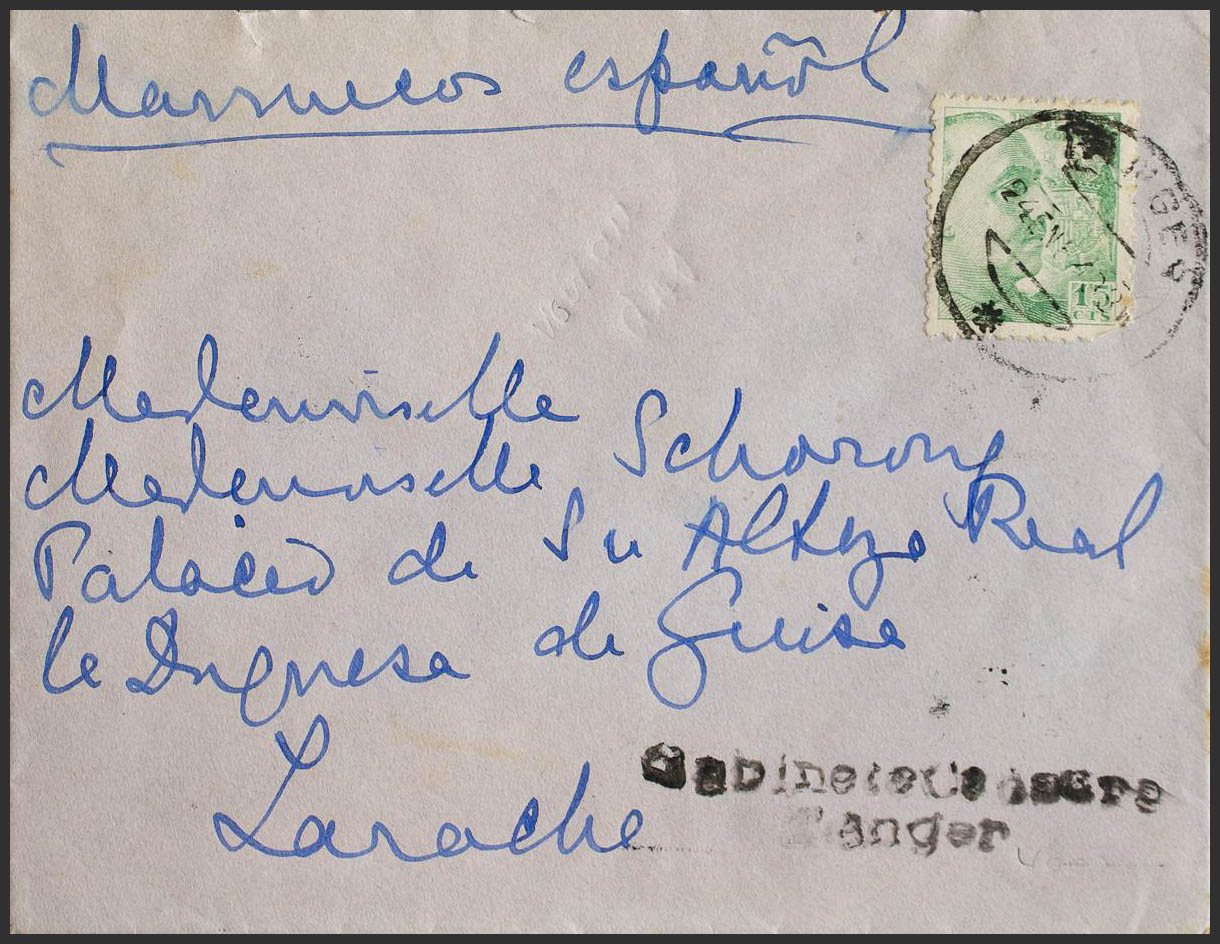 Marruecos español
15
CTS
Mademoiselle
Mademoiselle Scharony
Palacio de Su Alteza Real
la Duquesa de Guisa
Larache
Gabinete Censura
Tanger